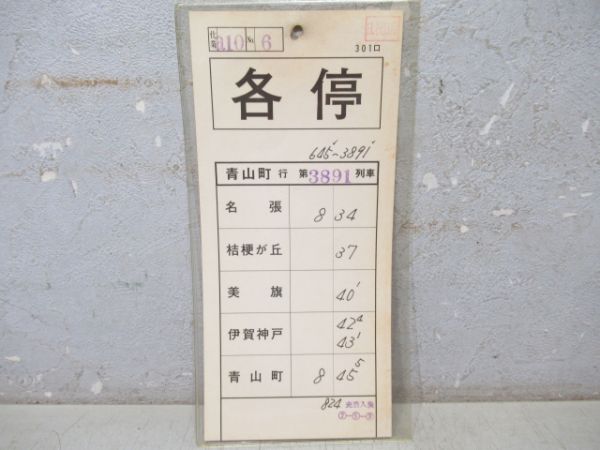 仕業 a10 № 6
301口
各停
645'~3891'
青山町 行 第3891列車
名張 8 34
桔梗が丘 37
美旗 40'
伊賀神戸 42⁴
43'
青山町 8 45⁵
824